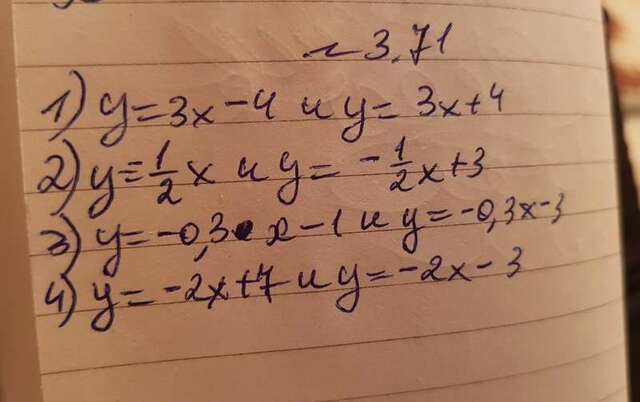 ~ 3.71
1) y=3x-4 и y= 3x+4
2) y=1/2 x и y= -1/2 x+3
3) y=-0,3·x-1 и y=-0,3x-3
4) y=-2x+7 и y=-2x-3